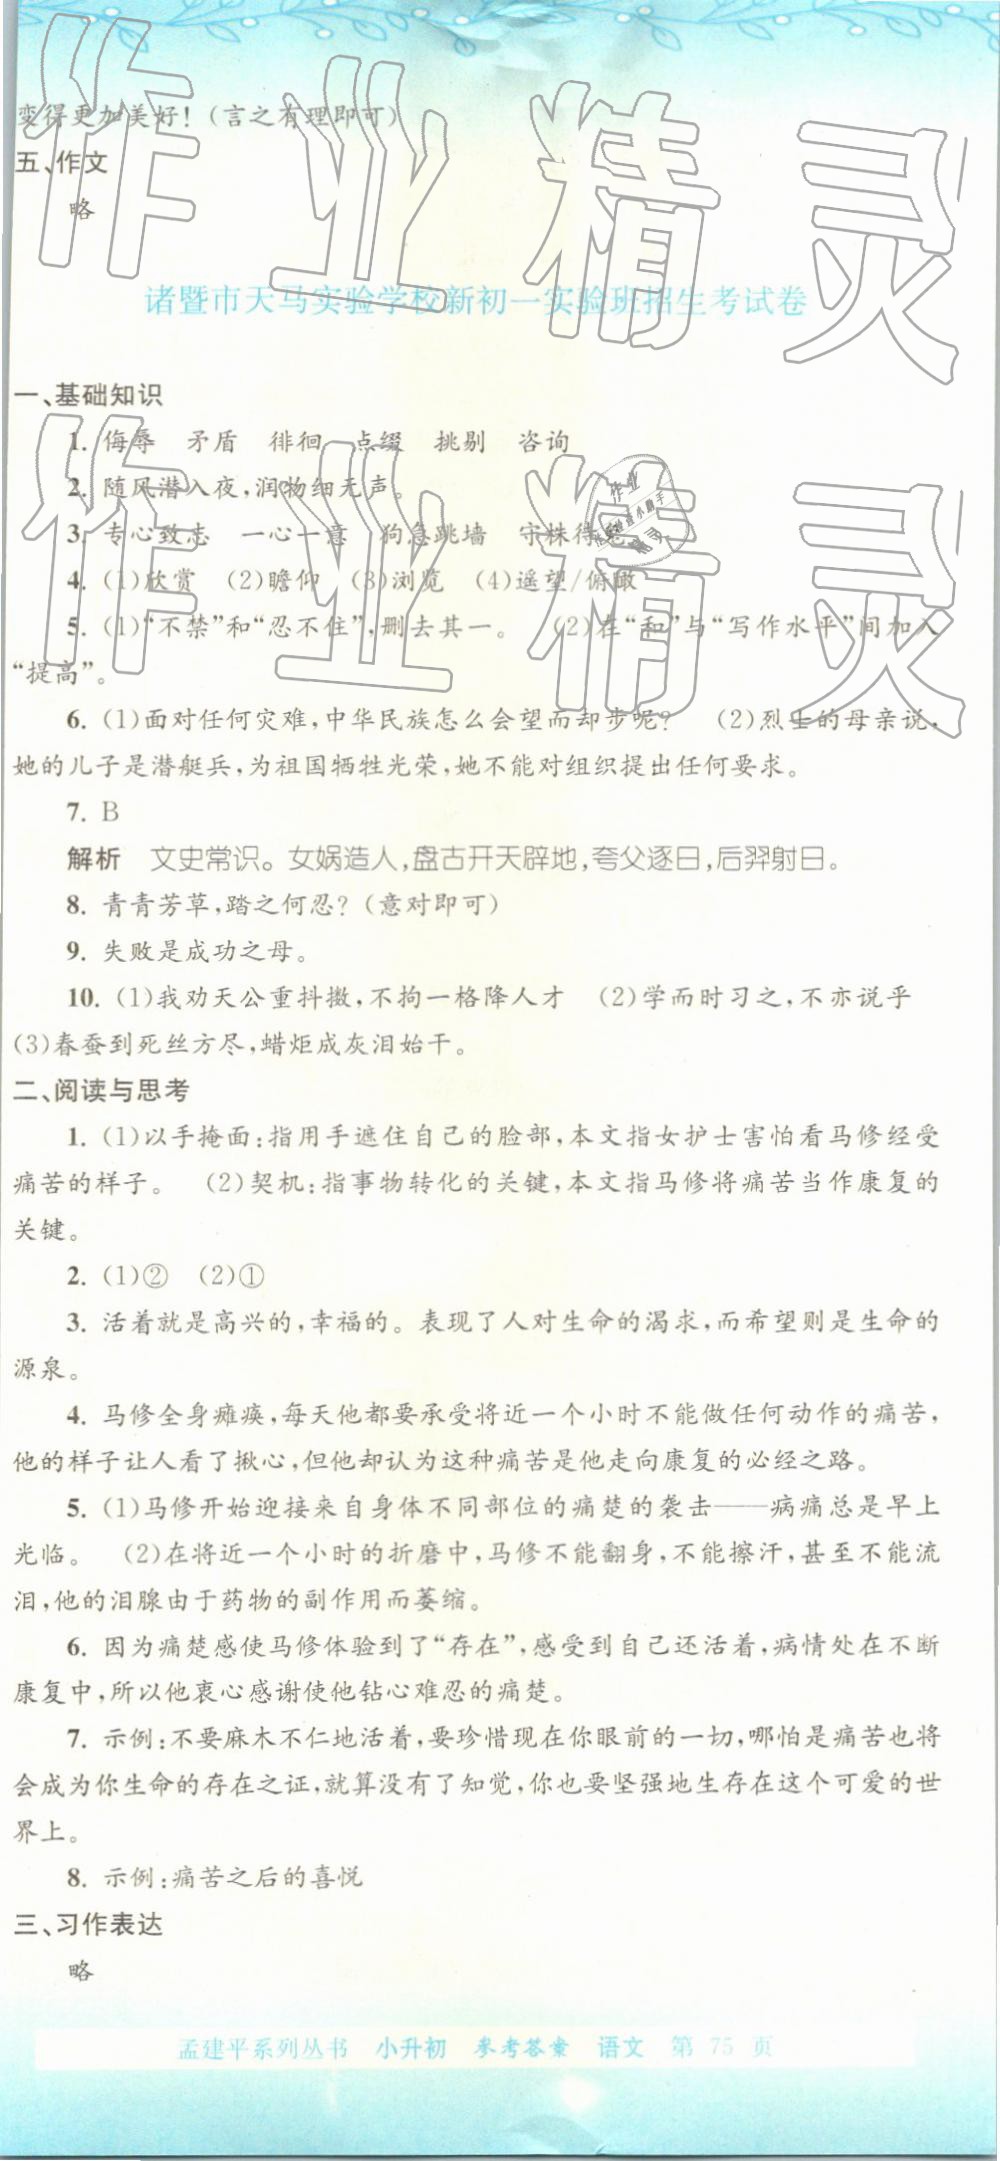 变得更加美好!(言之有理即可)
五、作文
略
诸暨市天马实验学校新初一实验班招生考试卷
一、基础知识
1. 侮辱 矛盾 徘徊 点缀 挑剔 咨询
2. 随风潜入夜,润物细无声。
3. 专心致志 一心一意 狗急跳墙 守株待兔
4. (1)欣赏 (2)瞻仰 (3)浏览 (4)遥望/俯瞰
5. (1)“不禁”和“忍不住”,删去其一。 (2)在“和”与“写作水平”间加入
“提高”。
6. (1)面对任何灾难,中华民族怎么会望而却步呢? (2)烈士的母亲说,
她的儿子是潜艇兵,为祖国牺牲光荣,她不能对组织提出任何要求。
7. B
解析 文史常识。女娲造人,盘古开天辟地,夸父逐日,后羿射日。
8. 青青芳草,踏之何忍?(意对即可)
9. 失败是成功之母。
10. (1)我劝天公重抖擞,不拘一格降人才 (2)学而时习之,不亦说乎
(3)春蚕到死丝方尽,蜡炬成灰泪始干。
二、阅读与思考
1. (1)以手掩面:指用手遮住自己的脸部,本文指女护士害怕看马修经受
痛苦的样子。 (2)契机:指事物转化的关键,本文指马修将痛苦当作康复的
关键。
2. (1)② (2)①
3. 活着就是高兴的,幸福的。表现了人对生命的渴求,而希望则是生命的
源泉。
4. 马修全身瘫痪,每天他都要承受将近一个小时不能做任何动作的痛苦,
他的样子让人看了揪心,但他却认为这种痛苦是他走向康复的必经之路。
5. (1)马修开始迎接来自身体不同部位的痛楚的袭击——病痛总是早上
光临。 (2)在将近一个小时的折磨中,马修不能翻身,不能擦汗,甚至不能流
泪,他的泪腺由于药物的副作用而萎缩。
6. 因为痛楚感使马修体验到了“存在”,感受到自己还活着,病情处在不断
康复中,所以他衷心感谢使他钻心难忍的痛楚。
7. 示例:不要麻木不仁地活着,要珍惜现在你眼前的一切,哪怕是痛苦也将
会成为你生命的存在之证,就算没有了知觉,你也要坚强地生存在这个可爱的世
界上。
8. 示例:痛苦之后的喜悦
三、习作表达
略
孟建平系列丛书 小升初 参考答案 语文 第 75 页
作业精灵
作业精灵